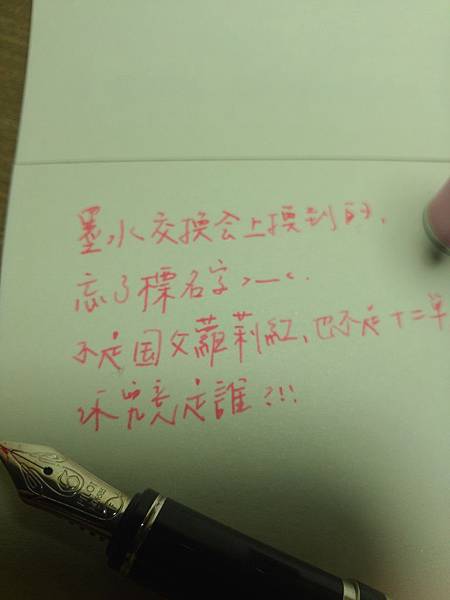 墨水交換会上換到的,
忘了標名字>_<.
不是国文蘿莉紅,也不是十二單
你究竟是誰?!!!